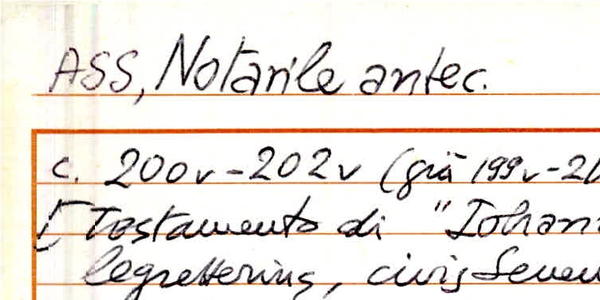 ASS, Notarile antec.
c. 200v-202v (già 199v-2
[Testamento di "Iohan
legretterius, civis